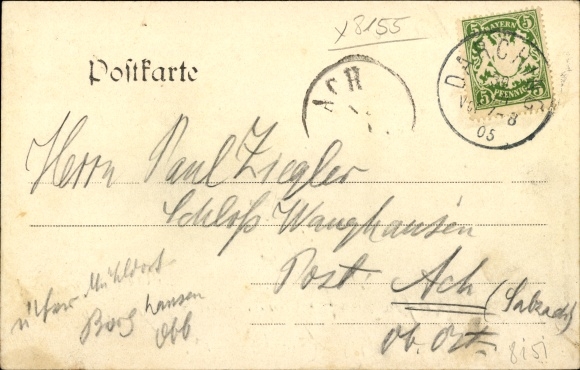 x8155
Postkarte
BAYERN
5 5
PFENNIG
DACH
7-8
05
ACH
Herrn Paul Ziegler
Schloß Wanghausen
Post Ach
(Salzach)
Ob. Öst.
über Mühldorf
Burghausen
Obb.
8151